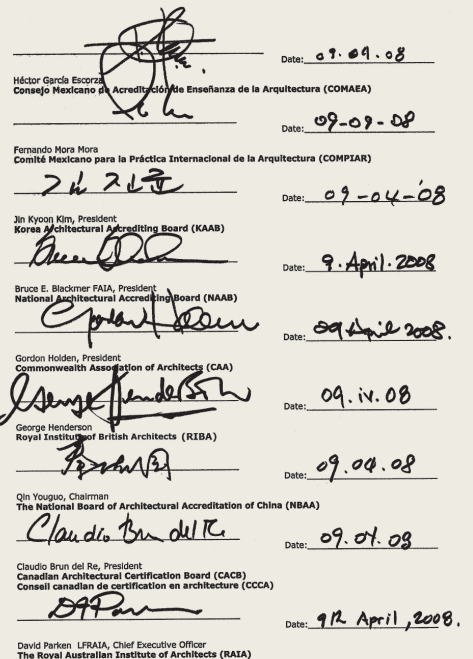 Date: 09.04.08
Héctor García Escorza
Consejo Mexicano de Acreditación de Enseñanza de la Arquitectura (COMAEA)
Date: 09-09-08
Fernando Mora Mora
Comité Mexicano para la Práctica Internacional de la Arquitectura (COMPIAR)
김진균
Date: 09-04-'08
Jin Kyoon Kim, President
Korea Architectural Accrediting Board (KAAB)
Date: 9. April. 2008
Bruce E. Blackmer FAIA, President
National Architectural Accrediting Board (NAAB)
Gordon Holden
Date: 09 April 2008.
Gordon Holden, President
Commonwealth Association of Architects (CAA)
George Henderson
Date: 09.iv.08
George Henderson
Royal Institute of British Architects (RIBA)
Date: 09.04.08
Qin Youguo, Chairman
The National Board of Architectural Accreditation of China (NBAA)
Claudio Brun del Re
Date: 09.04.08
Claudio Brun del Re, President
Canadian Architectural Certification Board (CACB)
Conseil canadien de certification en architecture (CCCA)
Date: 9th April, 2008.
David Parken LFRAIA, Chief Executive Officer
The Royal Australian Institute of Architects (RAIA)